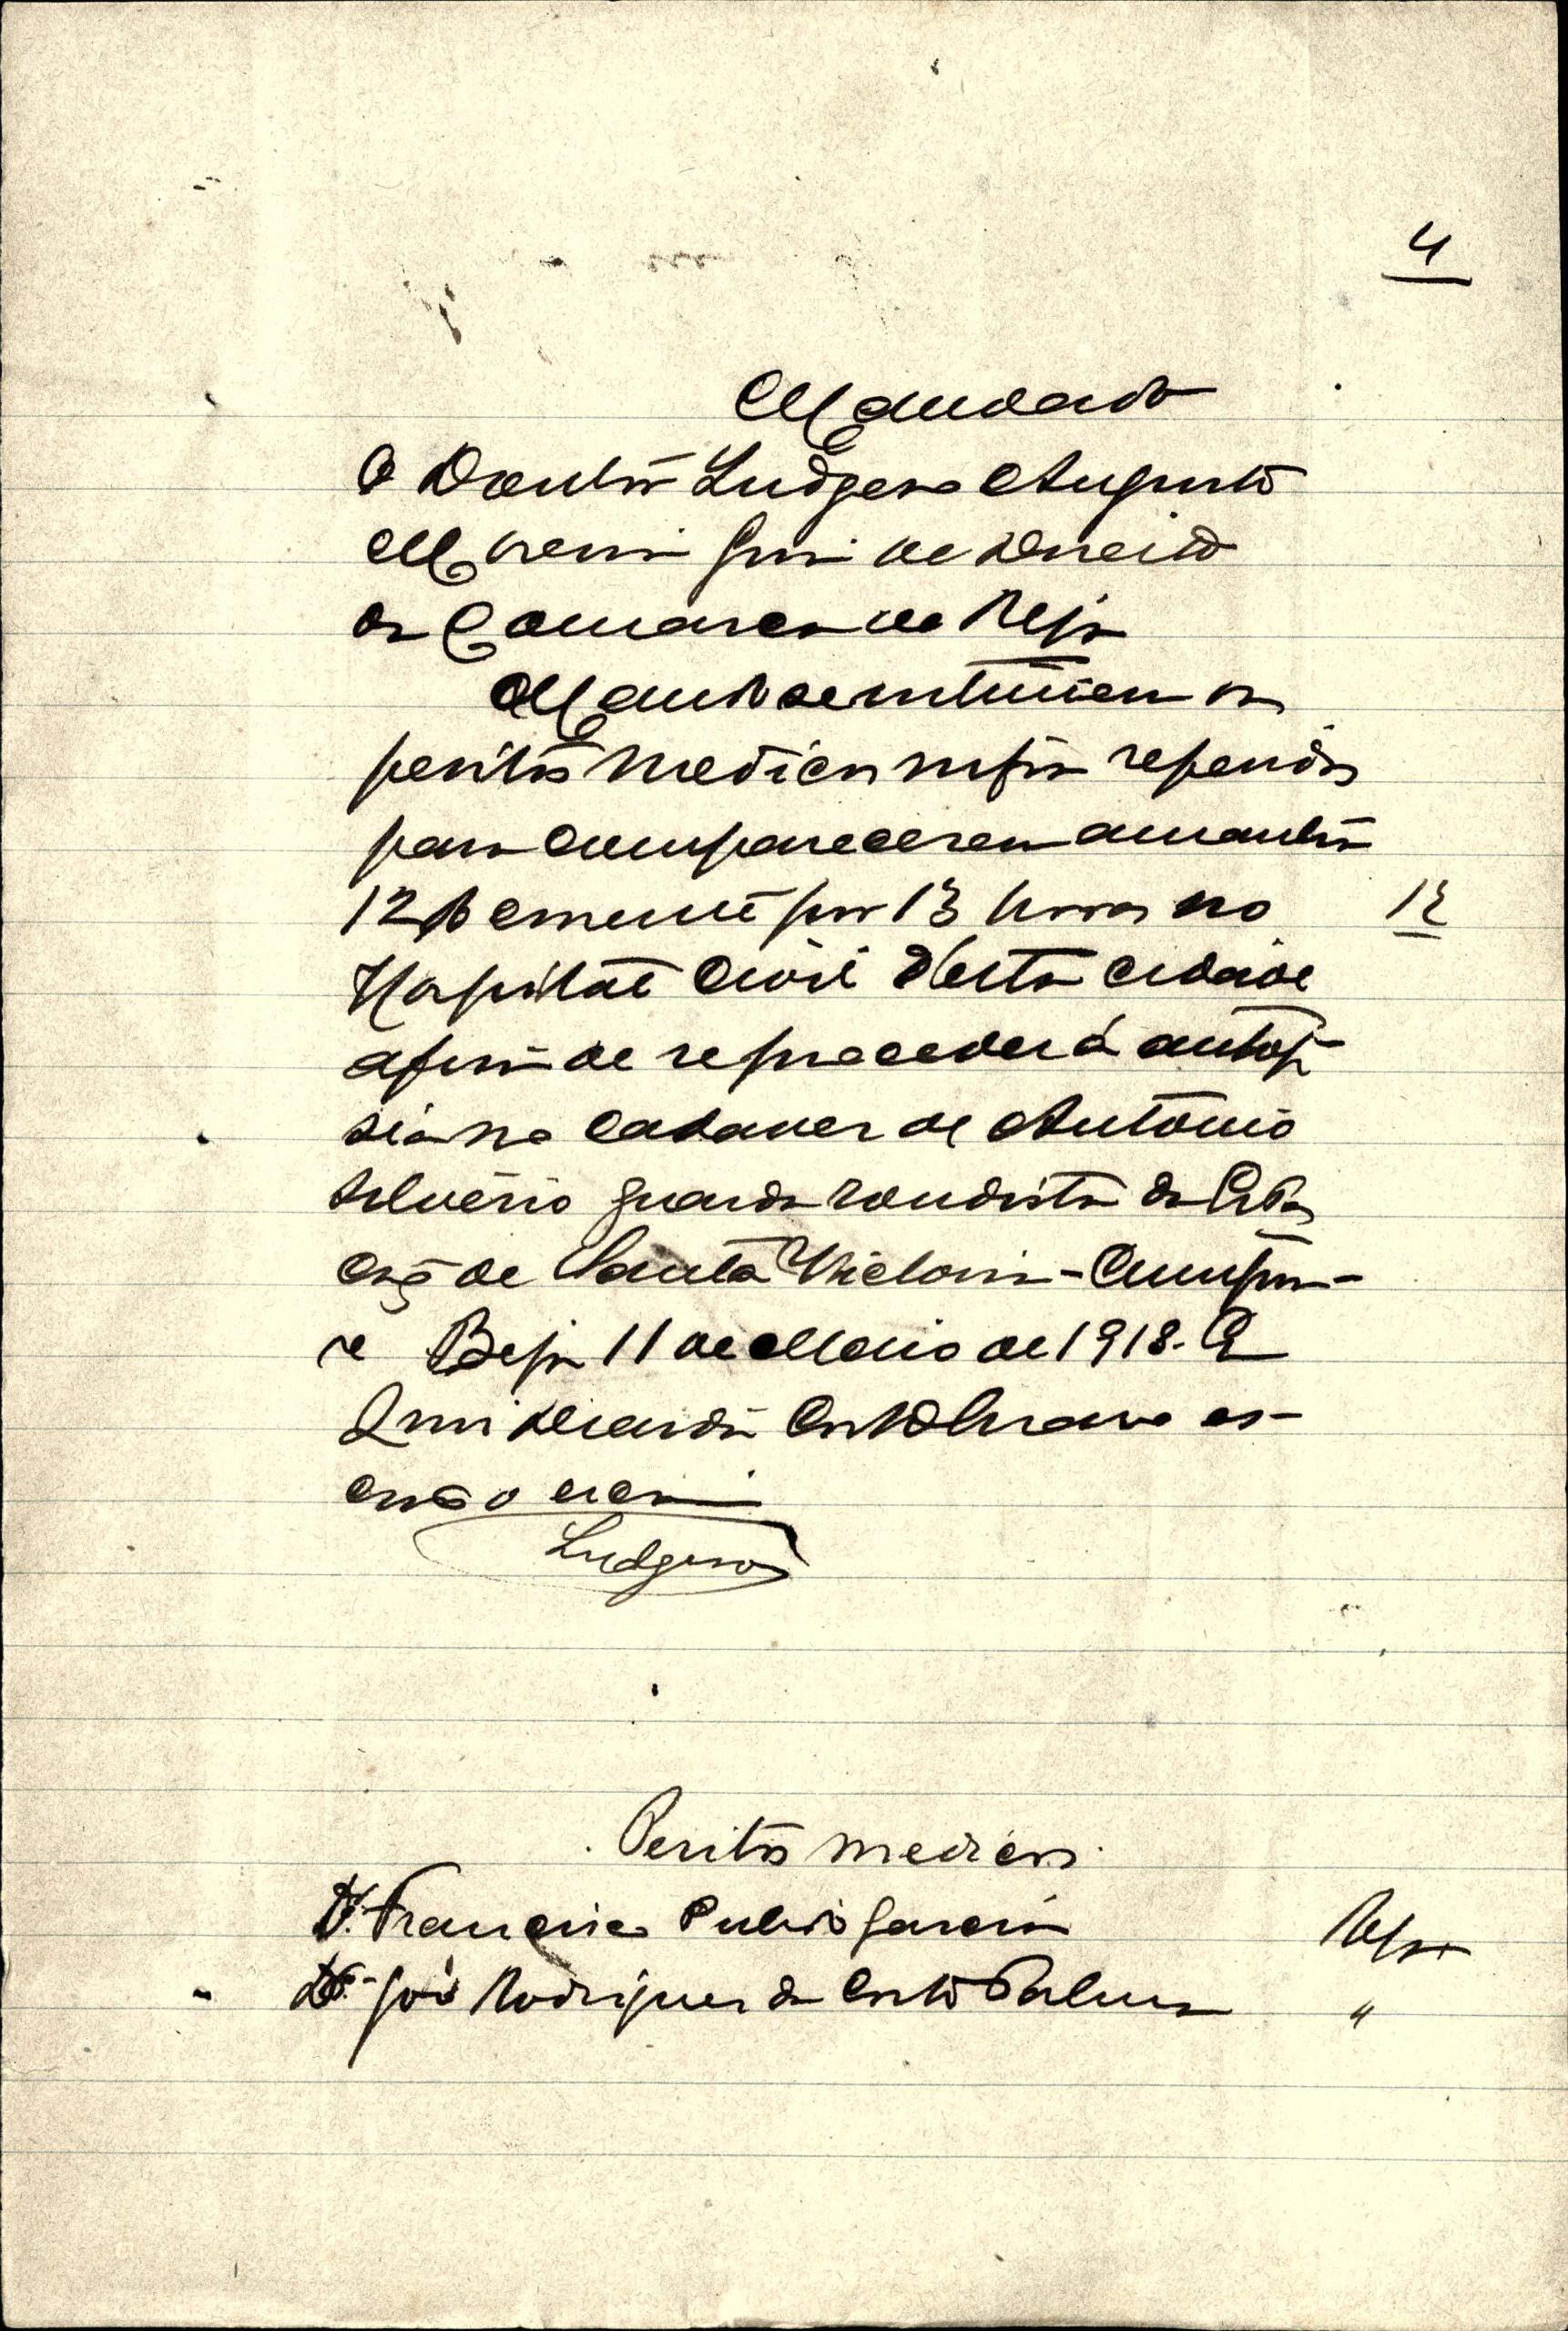 4
Mandado
O Doutor Ludgero Augusto
Moreira Juiz de Direito
da Comarca de Beja
Mando se intimem os
peritos medicos infra referidos
para comparecerem amanhã
12 do corrente por 13 horas no
12
Hospital Civil d'esta cidade
afim de se proceder á autop
sia no cadaver de Antonio
Silverio guarda rondista da Esta
ção de Santa Victoria - Cumpra-
se Beja 11 de Maio de 1918. E
escrivão o escrevi
Ludgero
Peritos medicos
Dr. Francisco Pulido Garcia Beja
Dr. João Rodrigues da Costa Palma "